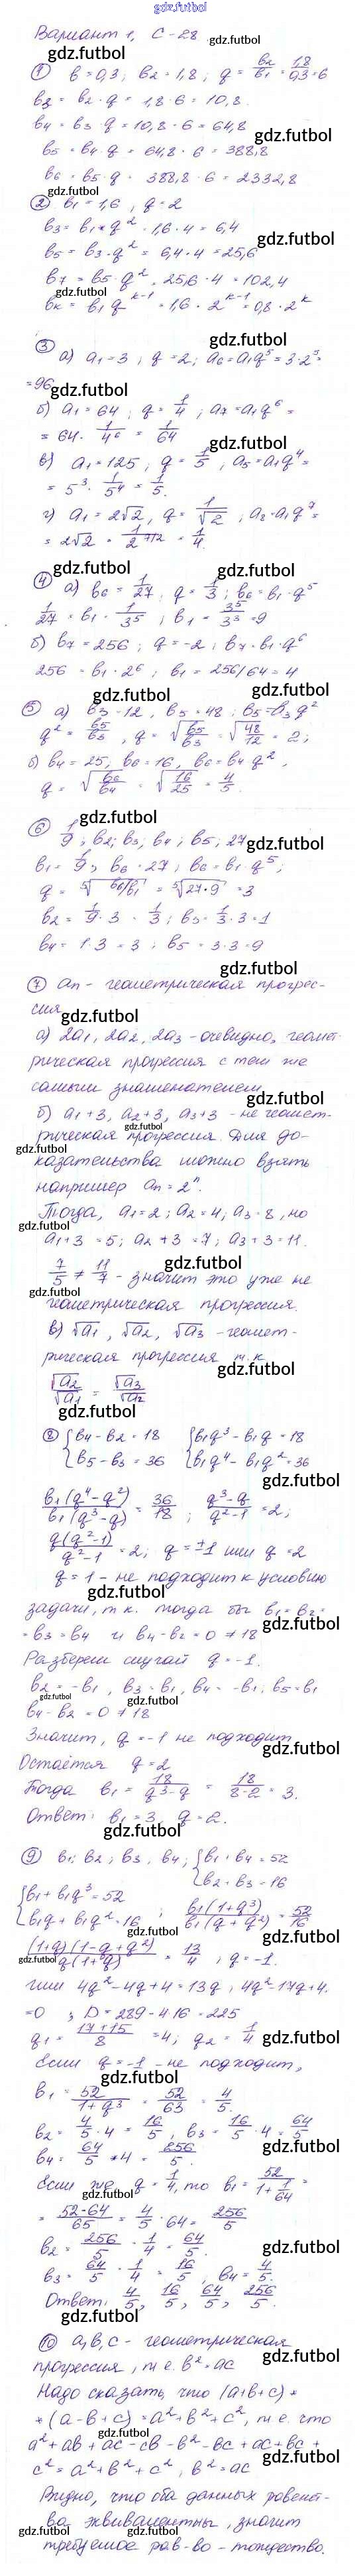 С-28
Вариант 1, С-28 gdz.futbol
gdz.futbol
① b = 0,3; b2 = 1,8; q = b2/b1 = 1,8/0,3 = 6
b3 = b2 · q = 1,8 · 6 = 10,8.
b4 = b3 · q = 10,8 · 6 = 64,8
gdz.futbol
b5 = b4 · q = 64,8 · 6 = 388,8
b6 = b5 · q = 388,8 · 6 = 2332,8
gdz.futbol
② b1 = 1,6, q = 2
b3 = b1 * q² = 1,6 · 4 = 6,4
gdz.futbol
b5 = b3 · q² = 6,4 · 4 = 25,6
b7 = b5 · q² = 25,6 · 4 = 102,4
gdz.futbol
bk = b1 q^k-1 = 1,6 · 2^k-1 = 0,8 · 2^k
gdz.futbol
③ а) a1 = 3; q = 2; a6 = a1q⁵ = 3 · 2⁵ =
= 96 gdz.futbol
б) a1 = 64; q = 1/4; a7 = a1q⁶ =
= 64 · 1/4⁶ = 1/64
gdz.futbol
в) a1 = 125, q = 1/5, a5 = a1q⁴ =
= 5³ · 1/5⁴ = 1/5.
г) a1 = 2√2, q = 1/√2, a8 = a1q⁷ =
= 2√2 · 1/2^7/2 = 1/4.
gdz.futbol gdz.futbol
④ а) b6 = 1/27, q = 1/3; b6 = b1 · q⁵
1/27 = b1 · 1/3⁵; b1 = 3⁵/3³ = 9
б) b7 = 256; q = -2; b7 = b1 · q⁶
256 = b1 · 2⁶, b1 = 256/64 = 4
gdz.futbol gdz.futbol
⑤ а) b3 = 12, b5 = 48; b5 = b3 q²
q² = b5/b3, q = √b5/b3 = √48/12 = 2;
б) b4 = 25, b6 = 16, b6 = b4 q²,
q = √b6/b4 = √16/25 = 4/5.
gdz.futbol
⑥ 1/9; b2; b3; b4; b5; 27
gdz.futbol
b1 = 1/9, b6 = 27; b6 = b1 · q⁵;
q = ⁵√b6/b1 = ⁵√27 · 9 = 3
b2 = 1/9 · 3 = 1/3; b3 = 1/3 · 3 = 1
b4 = 1 · 3 = 3; b5 = 3 · 3 = 9
gdz.futbol
⑦ an - геометрическая прогрес-
сия
gdz.futbol
а) 2a1, 2a2, 2a3 - очевидно, геомет-
рическая прогрессия с тем же
самым знаменателем.
gdz.futbol
б) a1 + 3, a2 + 3, a3 + 3 - не геомет-
gdz.futbol
рическая прогрессия. Для до-
gdz.futbol
казательства можно взять
например an = 2ⁿ.
Тогда, a1 = 2; a2 = 4; a3 = 8, но
gdz.futbol
a1 + 3 = 5; a2 + 3 = 7; a3 + 3 = 11.
gdz.futbol
7/5 ≠ 11/7 - значит это уже не
gdz.futbol
геометрическая прогрессия.
в) √a1, √a2, √a3 - геомет-
рическая прогрессия т.к.
gdz.futbol
√a2/√a1 = √a3/√a2
gdz.futbol
⑧ {b4 - b2 = 18 {b1q³ - b1q = 18
b5 - b3 = 36 b1q⁴ - b1q² = 36
gdz.futbol
b1(q⁴ - q²)/b1(q³ - q) = 36/18; q³ - q/q² - 1 = 2;
q(q² - 1)/q² - 1 = 2; q = ±1 или q = 2
q = 1 - не подходит к условию
gdz.futbol
задачи, т.к. тогда бы b1 = b2 =
= b3 = b4 и b4 - b2 = 0 ≠ 18
gdz.futbol
Разберем случай q = -1.
b2 = -b1, b3 = b1, b4 = -b1, b5 = b1
gdz.futbol gdz.futbol
b4 - b2 = 0 ≠ 18
Значит, q = -1 не подходит
gdz.futbol
Остаётся q = 2
Тогда b1 = 18/q³ - q = 18/8 - 2 = 3.
Ответ: b1 = 3, q = 2.
gdz.futbol
⑨ b1; b2; b3, b4; {b1 + b4 = 52
b2 + b3 = 16
{b1 + b1q³ = 52
b1q + b1q² = 16; b1(1 + q³)/b1(q + q²) = 52/16
gdz.futbol gdz.futbol
(1 + q)(1 - q + q²)/q(1 + q) = 13/4, q = -1.
gdz.futbol
или 4q² - 4q + 4 = 13q, 4q² - 17q + 4.
= 0; D = 289 - 4·16 = 225
q1 = 17 + 15/8 = 4; q2 = 1/4
gdz.futbol
Если q = -1 - не подходит,
gdz.futbol
b1 = 52/1 + q³ = 52/65 = 4/5.
b2 = 4/5 · 4 = 16/5, b3 = 16/5 · 4 = 64/5
gdz.futbol
b4 = 64/5 * 4 = 256/5.
Если же q = 1/4, то b1 = 52/1 + 1/64 =
gdz.futbol
= 52·64/65 = 4/5 · 64 = 256/5
b2 = 256/5 · 1/4 = 64/5.
gdz.futbol
b3 = 64/5 · 1/4 = 16/5, b4 = 4/5.
Ответ: 4/5, 16/5, 64/5, 256/5.
gdz.futbol
⑩ a, b, c - геометрическая
прогрессия, т.е. b² = ac
gdz.futbol
Надо сказать, что (a + b + c) *
* (a - b + c) = a² + b² + c², т.е. что
gdz.futbol
a² + ab + ac - cb - b² - bc + ac + bc +
gdz.futbol
c² = a² + b² + c², b² = ac
Видно, что оба данных равенст-
ва эквивалентны, значит
gdz.futbol gdz.futbol
требуемое рав-во - тождество.